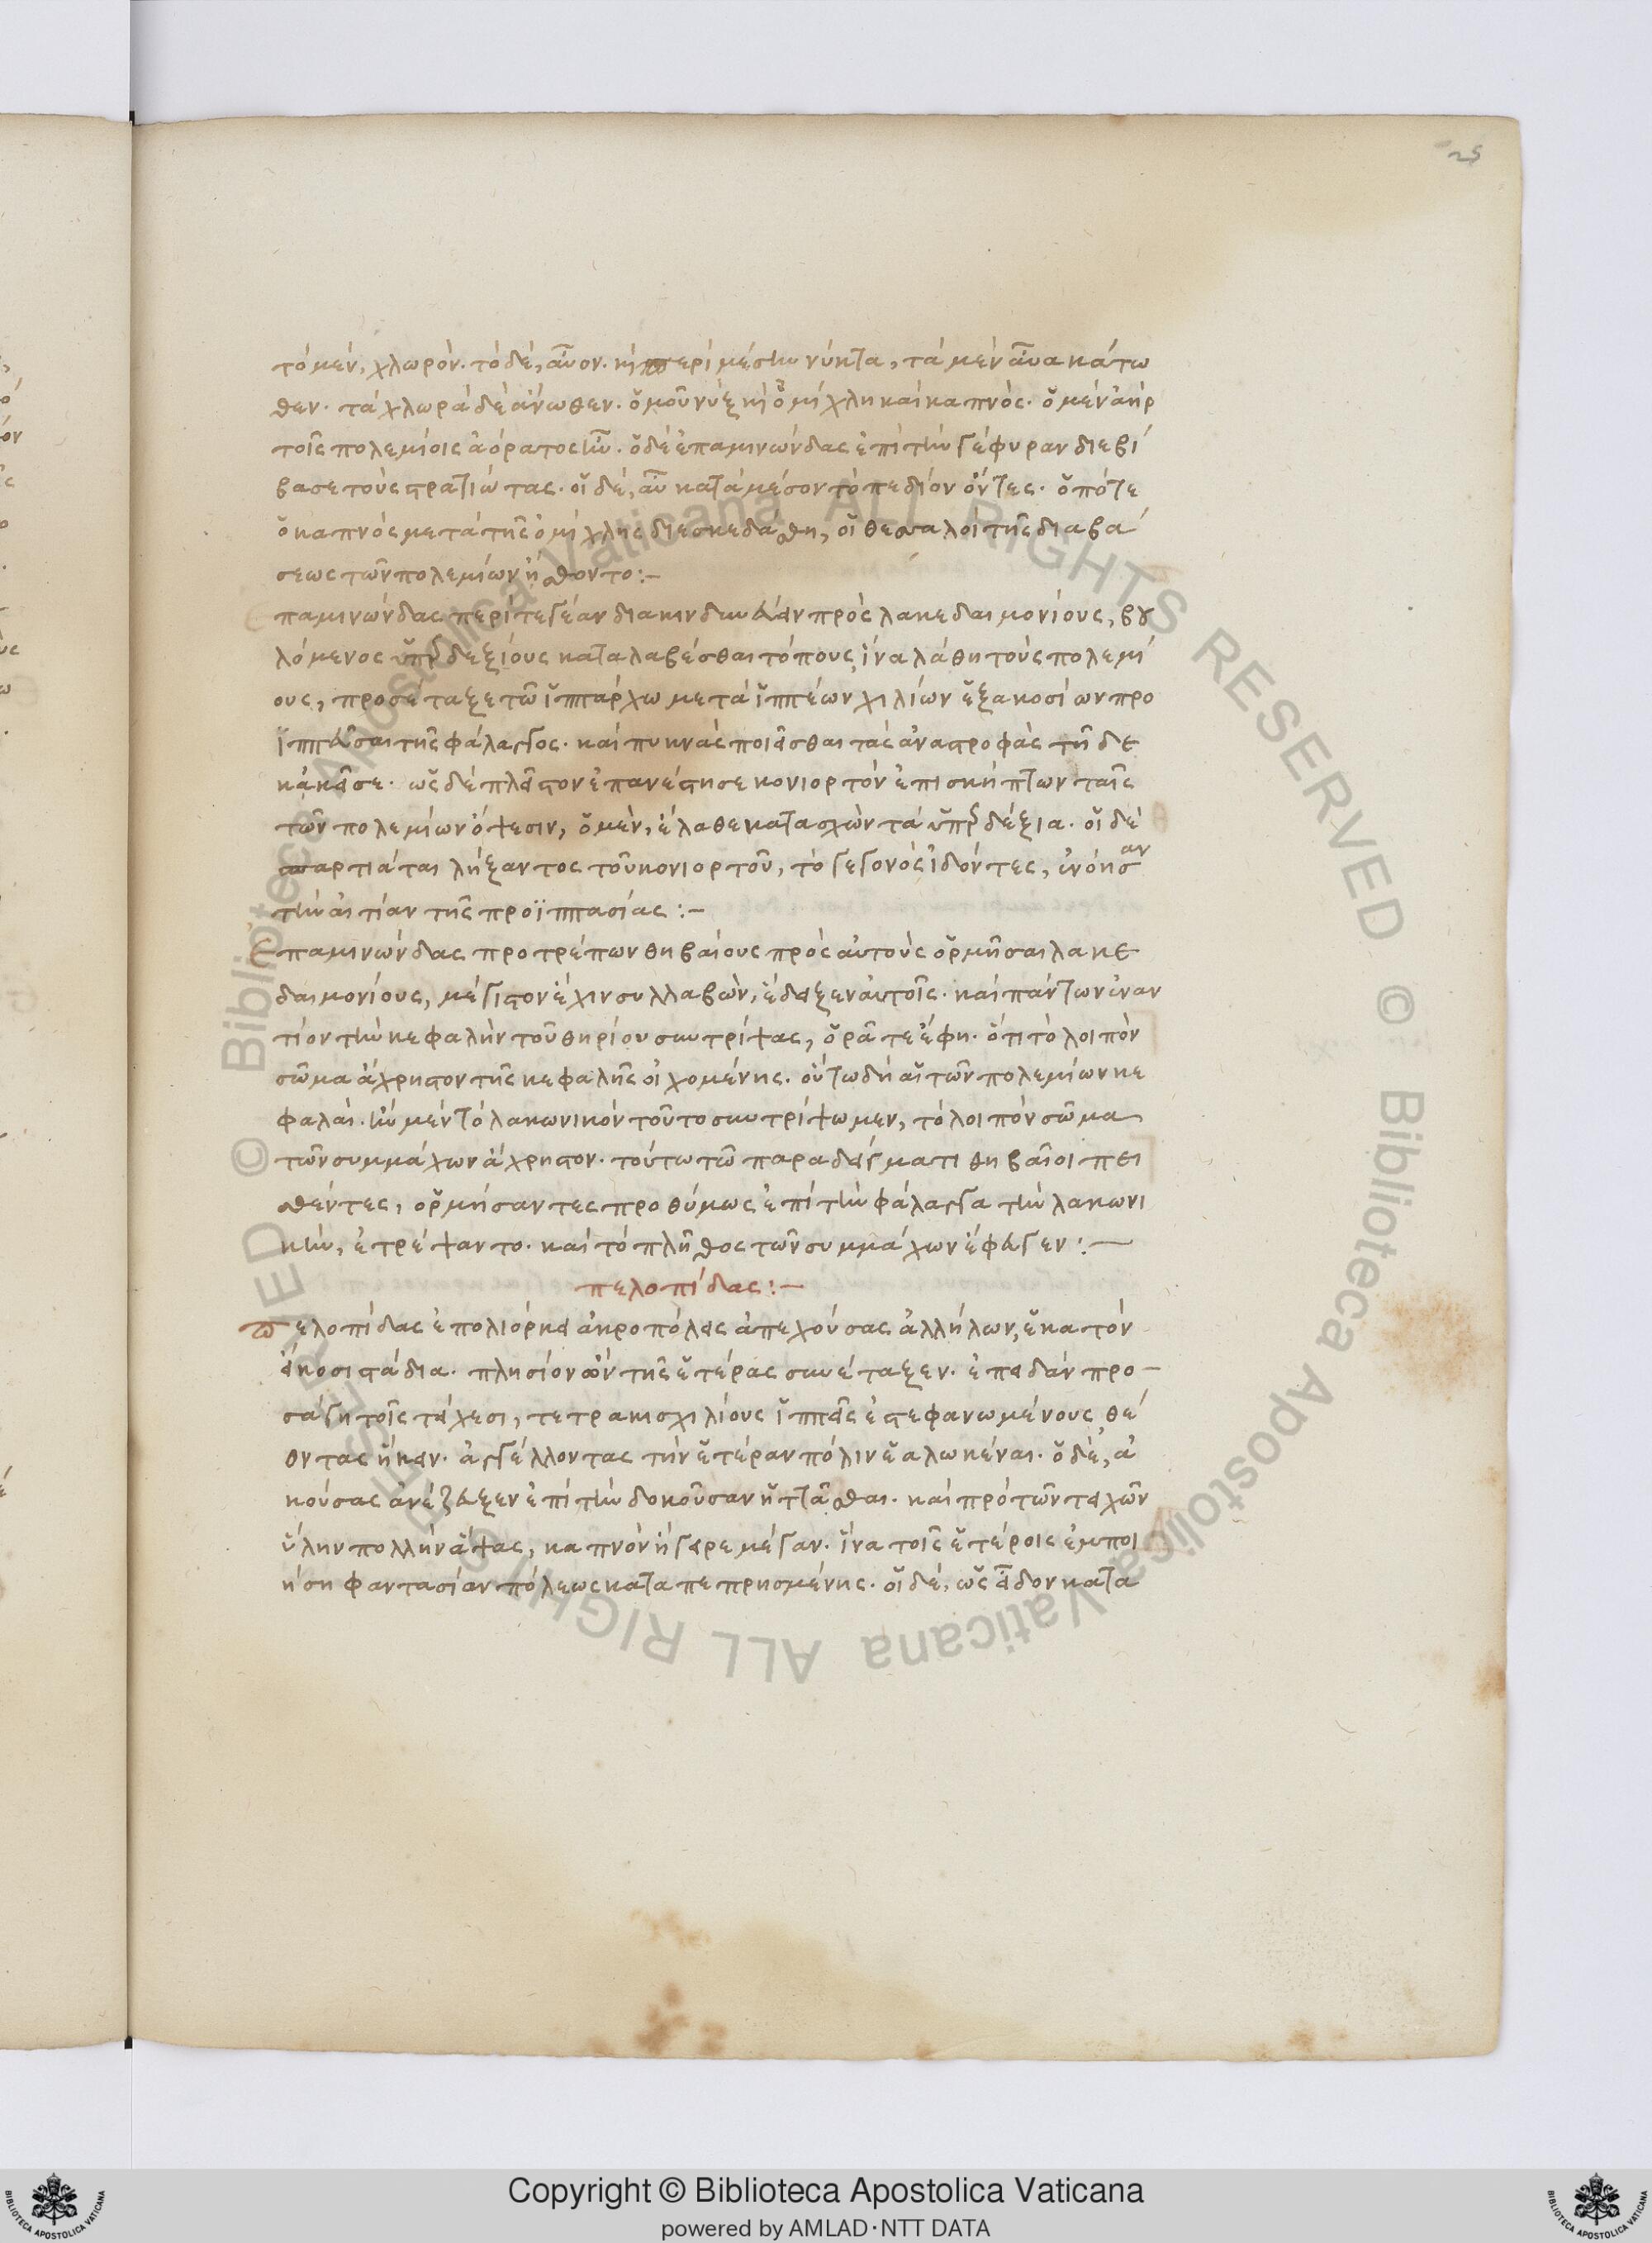 25
τὸ μὲν, χλωρὸν. τὸ δὲ, αὖον. καὶ περὶ μέσην νύκτα, τὰ μὲν αὖα κάτω
θεν. τὰ χλωρὰ δὲ ἄνωθεν. ὁμοῦ νὺξ καὶ ὁμίχλη καὶ καπνός. ὁ μὲν ἀὴρ
τοῖς πολεμίοις ἀόρατος ἦν. ὁ δὲ ἐπαμινώνδας ἐπὶ τὴν γέφυραν διεβί
βασε τοὺς στρατιώτας. οἱ δὲ, αὖ κατὰ μέσον τὸ πεδίον ὄντες. ὁπότε
ὁ καπνὸς μετὰ τῆς ὁμίχλης διεσκεδάσθη, οἱ θεσσαλοὶ τῆς διαβά
σεως τῶν πολεμίων ἤσθοντο:–
παμινώνδας περὶ τεγέαν διακινδυνεύειν πρὸς λακεδαιμονίους, βου
λόμενος ὑπερδεξίους καταλαβέσθαι τόπους, ἵνα λάθη τοὺς πολεμί
ους, προσέταξε τῶ ἱππάρχω μετὰ ἱππέων χιλίων ἑξακοσίων προ
ϊππεῦσαι τῆς φάλαγγος. καὶ πυκνὰς ποιεῖσθαι τὰς ἀναστροφὰς τῆδε
κἀκεῖσε. ὡς δὲ πλεῖστον ἐπανέστησε κονιορτὸν ἐπισκήπτων ταῖς
τῶν πολεμίων ὄψεσιν, ὁ μὲν, ἔλαθε κατασχὼν τὰ ὑπερδέξια. οἱ δὲ
σπαρτιάται λήξαντος τοῦ κονιορτοῦ, τὸ γεγονὸς ἰδόντες, ἐνόησαν
τὴν αἰτίαν τῆς προϊππασίας:–
Ἐπαμινώνδας προτρέπων θηβαίους πρὸς αὐτοὺς ὁρμῆσαι λακε
δαιμονίους, μέγιστον ἔχιν συλλαβὼν, ἔδειξεν αὐτοῖς. καὶ πάντων ἐναν
τίον τὴν κεφαλὴν τοῦ θηρίου συντρίψας, ὁρᾶτε ἔφη. ὅτι τὸ λοιπὸν
σῶμα ἄχρηστον τῆς κεφαλῆς οἰχομένης. οὕτω δὴ αἱ τῶν πολεμίων κε
φαλαί. ἢν μέν τὸ λακωνικὸν τοῦτο συντρίψωμεν, τὸ λοιπὸν σῶμα
τῶν συμμάχων ἄχρηστον. τούτω τῶ παραδείγματι θηβαῖοι πει
σθέντες, ὁρμήσαντες προθύμως ἐπὶ τὴν φάλαγγα τὴν λακωνι
κὴν, ἐτρέψαντο. καὶ τὸ πλῆθος τῶν συμμάχων ἔφευγεν:–
πελοπίδας:–
πελοπίδας ἐπολιόρκει ἀκροπόλεις ἀπεχούσας ἀλλήλων, ἑκατὸν
εἴκοσι στάδια. πλησίον ὢν τῆς ἑτέρας συνέταξεν. ἐπειδὰν προ–
σάγη τοῖς τείχεσι, τετρακισχιλίους ἱππεῖς ἐστεφανωμένους θέ
οντας ἥκειν. ἀγγέλλοντας τὴν ἑτέραν πόλιν ἑαλωκέναι. ὁ δὲ, ἀ
κούσας ἀνέζευξεν ἐπὶ τὴν δοκοῦσαν ἡττᾶσθαι. καὶ πρὸ τῶν τειχῶν
ὕλην πολλὴν ἅψας, καπνὸν ἤγειρε μέγαν. ἵνα τοῖς ἑτέροις ἐμποι
ήση φαντασίαν πόλεως καταπεπρησμένης. οἱ δὲ, ὡς εἶδον κατα
Copyright © Biblioteca Apostolica Vaticana
powered by AMLAD·NTT DATA